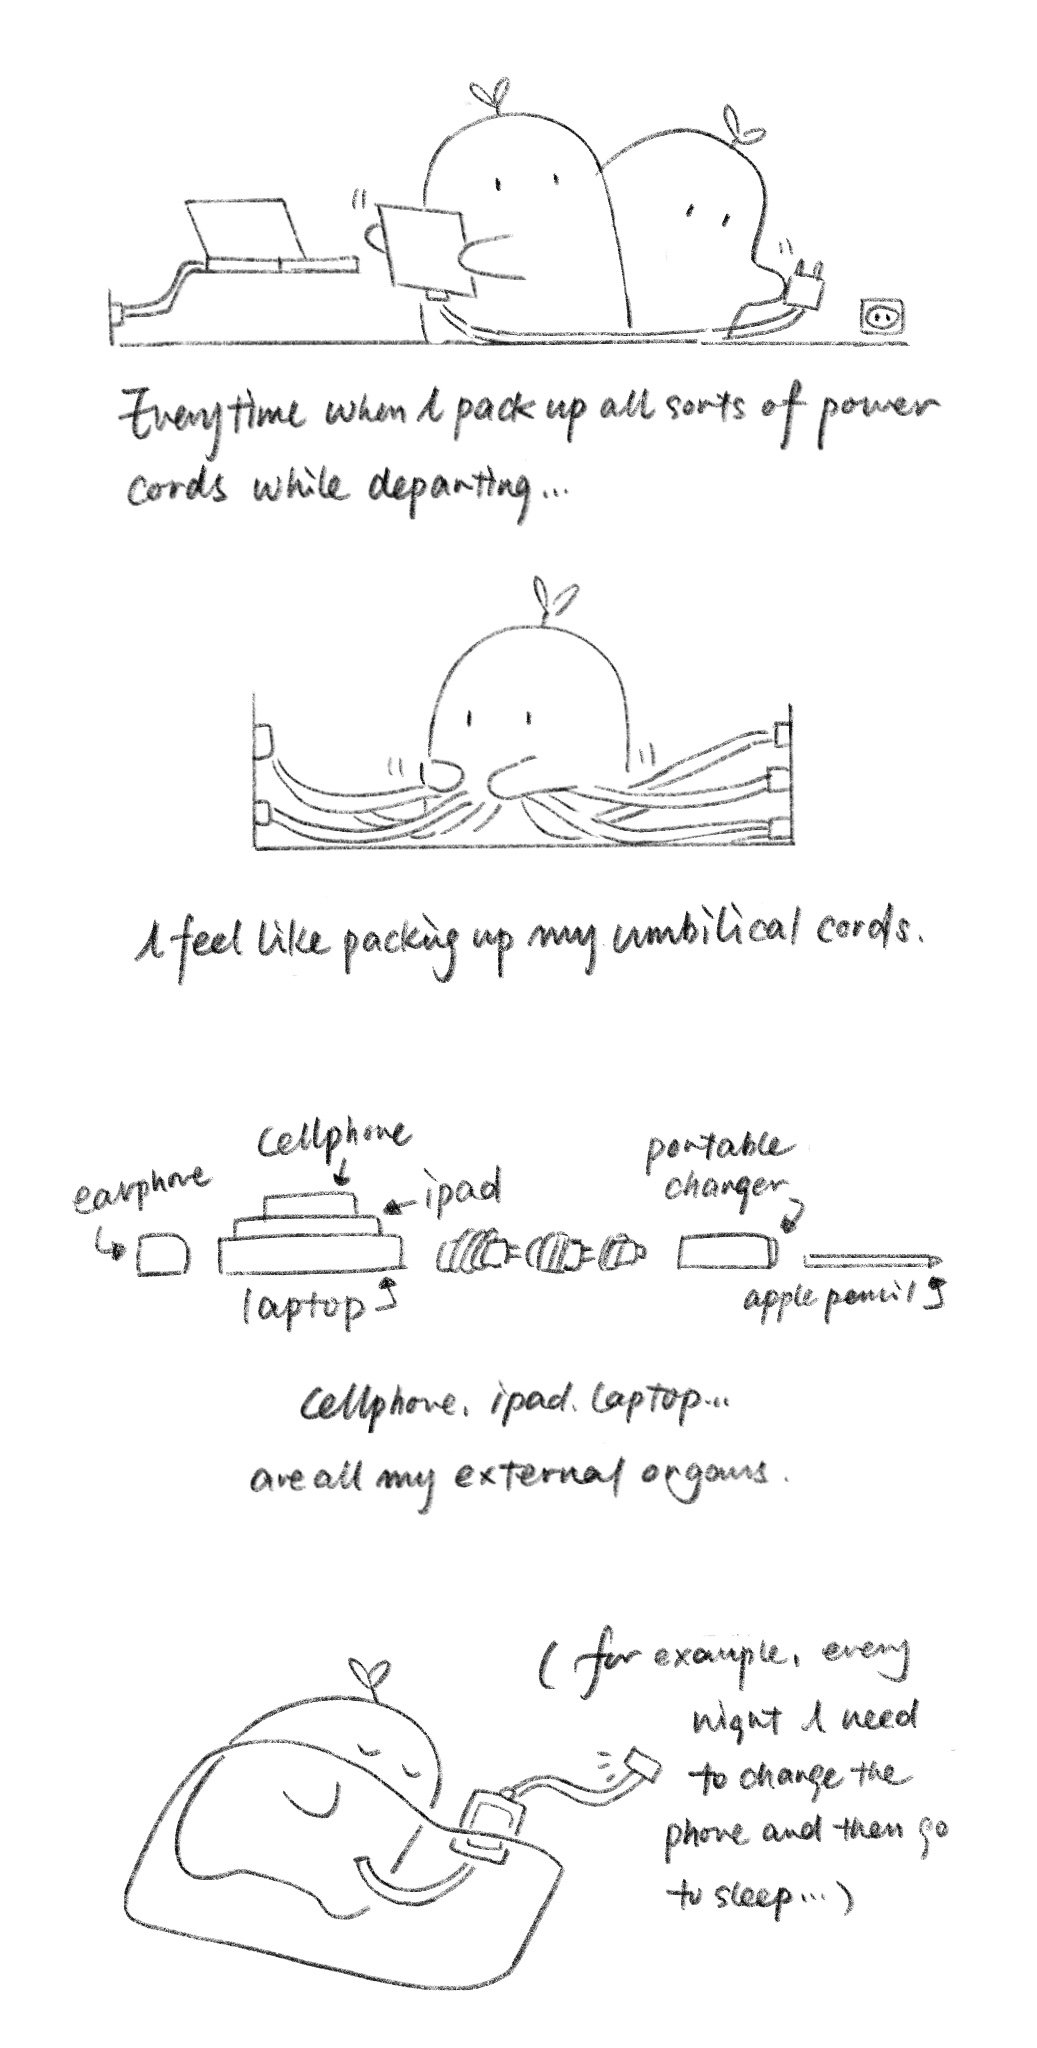 Everytime when I pack up all sorts of power
cords while departing...
I feel like packing up my umbilical cords.
cellphone
portable
changer
earphone
ipad
laptop
apple pencil
Cellphone. ipad. Laptop...
are all my external orgams.
( for example, every
night I need
to change the
phone and then go
to sleep...)